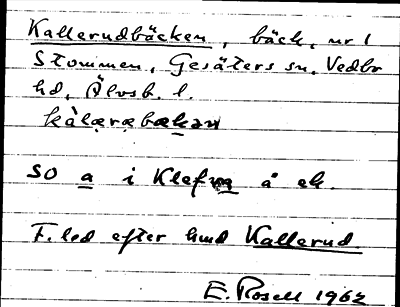 Kallerudbäcken, bäck, nr 1
Stommen, Gesäters sn, Vedbo
hd, Älvsb. l.
kàlarabækən
SO a i Klefva å ek.
F.led efter hmd Kallerud.
E. Rosell 1962